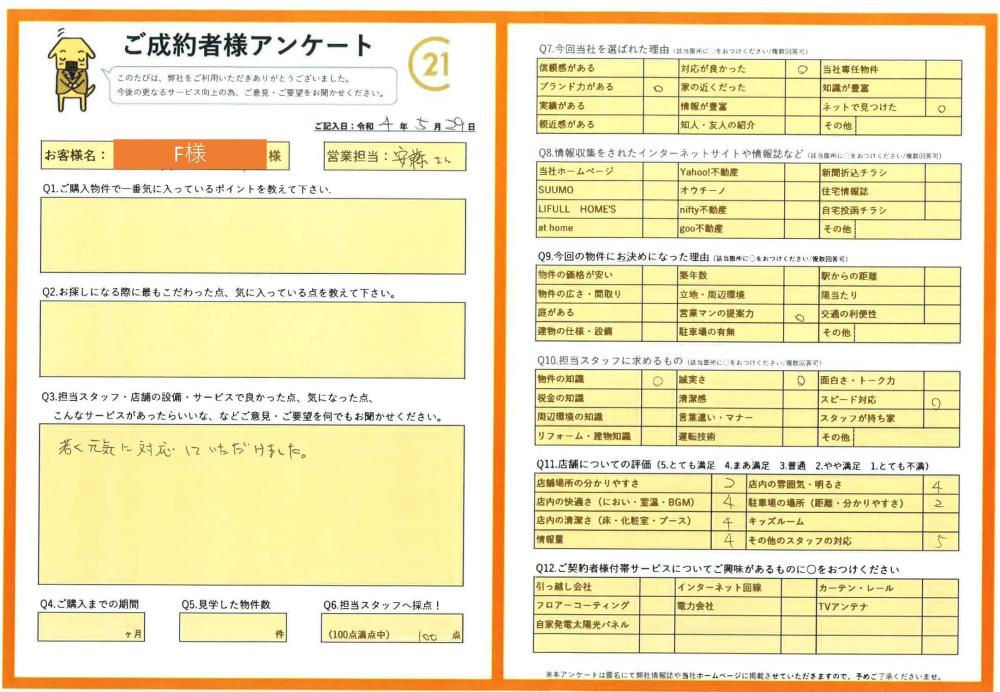 ご成約者様アンケート
このたびは、弊社をご利用いただきありがとうございました。
今後の更なるサービス向上の為、ご意見・ご要望をお聞かせください。
21
ご記入日：令和 4 年 5 月 29 日
お客様名： F様 様
営業担当： 安藤さん
Q1.ご購入物件で一番気に入っているポイントを教えて下さい.
Q2.お探しになる際に最もこだわった点、気に入っている点を教えて下さい。
Q3.担当スタッフ・店舗の設備・サービスで良かった点、気になった点、
こんなサービスがあったらいいな、などご意見・ご要望を何でもお聞かせください。
若く元気に対応していただけました。
Q4.ご購入までの期間
ヶ月
Q5.見学した物件数
件
Q6.担当スタッフへ採点！
(100点満点中) 100 点
Q7.今回当社を選ばれた理由（該当箇所に○をおつけください/複数回答可）
信頼感がある 対応が良かった ○ 当社専任物件
ブランド力がある ○ 家の近くだった 知識が豊富
実績がある 情報が豊富 ネットで見つけた ○
親近感がある 知人・友人の紹介 その他
Q8.情報収集をされたインターネットサイトや情報誌など（該当箇所に○をおつけください/複数回答可）
当社ホームページ Yahoo!不動産 新聞折込チラシ
SUUMO オウチーノ 住宅情報誌
LIFULL HOME'S nifty不動産 自宅投函チラシ
at home goo不動産 その他
Q9.今回の物件にお決めになった理由（該当箇所に○をおつけください/複数回答可）
物件の価格が安い 築年数 駅からの距離
物件の広さ・間取り 立地・周辺環境 陽当たり
庭がある 営業マンの提案力 ○ 交通の利便性
建物の仕様・設備 駐車場の有無 その他
Q10.担当スタッフに求めるもの（該当箇所に○をおつけください/複数回答可）
物件の知識 ○ 誠実さ ○ 面白さ・トーク力
税金の知識 清潔感 スピード対応 ○
周辺環境の知識 言葉遣い・マナー スタッフが持ち家
リフォーム・建物知識 運転技術 その他
Q11.店舗についての評価（5.とても満足 4.まあ満足 3.普通 2.やや満足 1.とても不満）
店舗場所の分かりやすさ 2 店内の雰囲気・明るさ 4
店内の快適さ（におい・室温・BGM） 4 駐車場の場所（距離・分かりやすさ） 2
店内の清潔さ（床・化粧室・ブース） 4 キッズルーム
情報量 4 その他のスタッフの対応 5
Q12.ご契約者様付帯サービスについてご興味があるものに○をおつけください
引っ越し会社 インターネット回線 カーテン・レール
フロアーコーティング 電力会社 TVアンテナ
自家発電太陽光パネル
※本アンケートは匿名にて弊社情報誌や当社ホームページに掲載させていただきますので、予めご了承くださいませ。